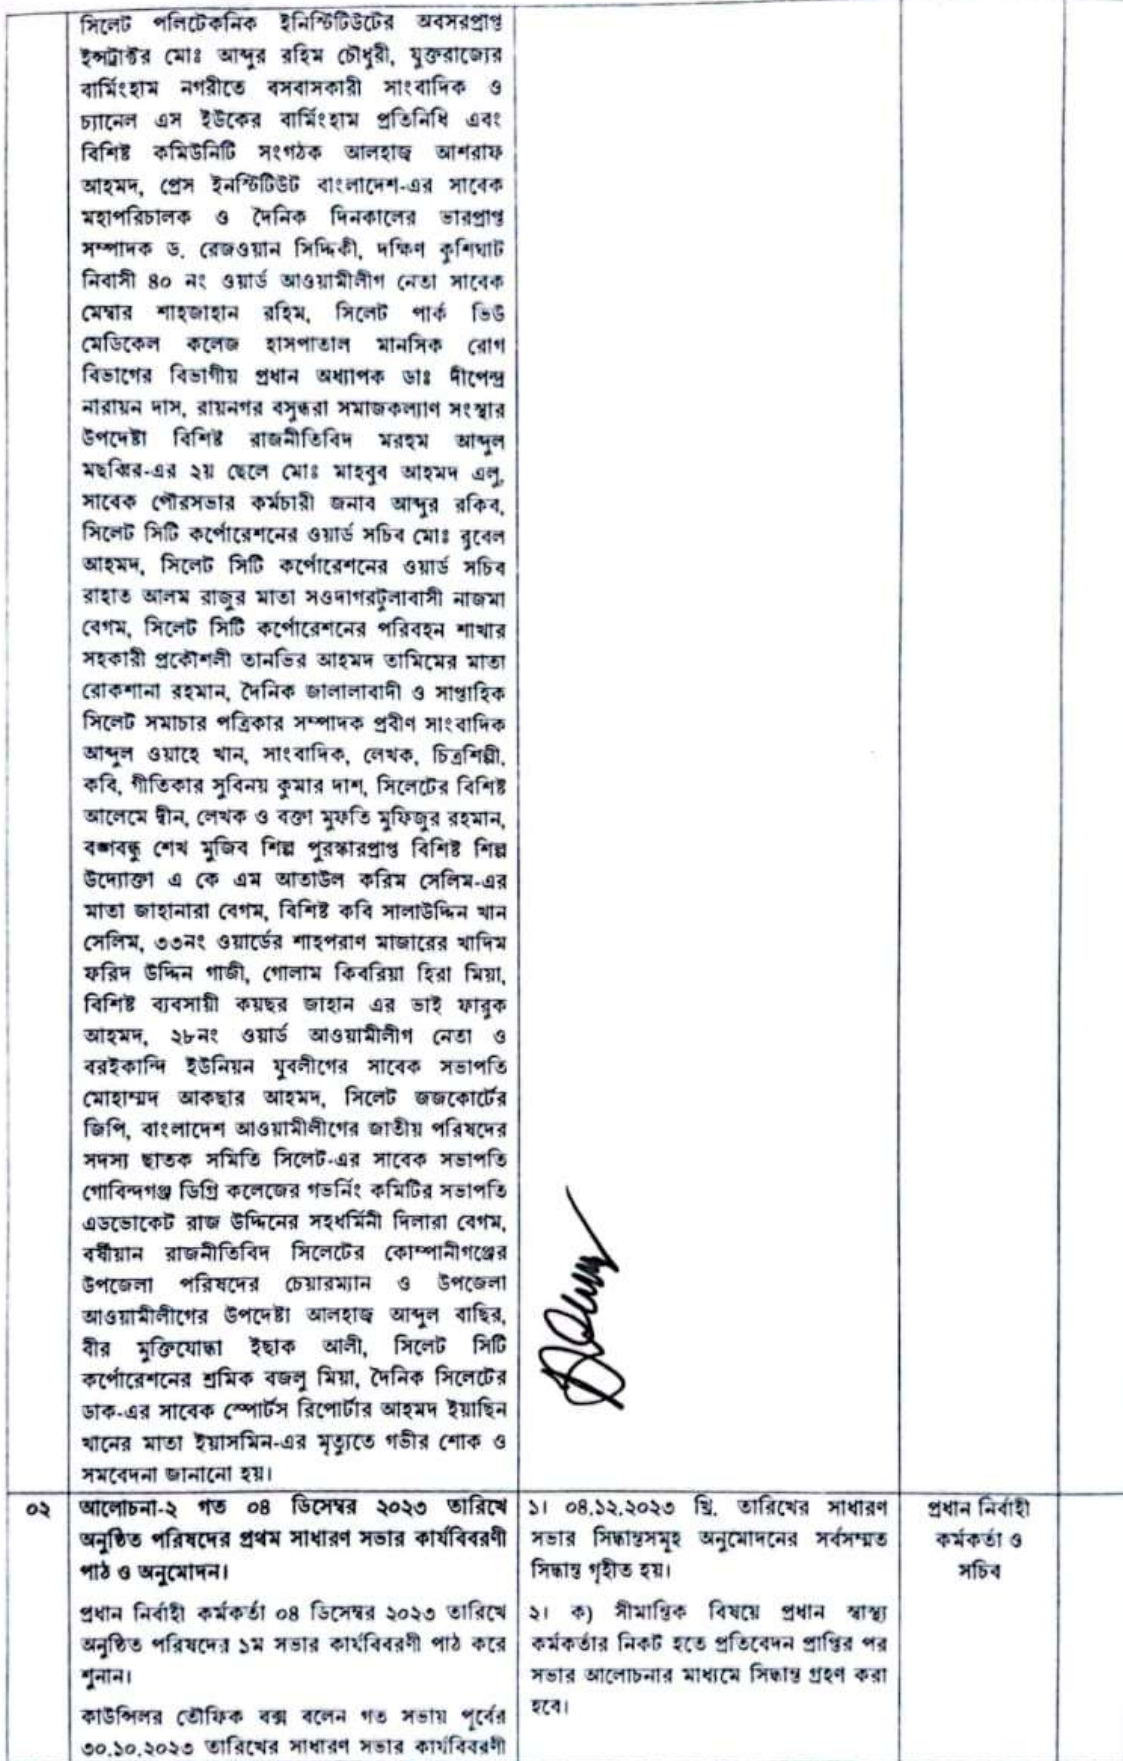 সিলেট পলিটেকনিক ইনিস্টিটিউটের অবসরপ্রাপ্ত
ইন্সট্রাক্টর মোঃ আব্দুর রহিম চৌধুরী, যুক্তরাজ্যের
বার্মিংহাম নগরীতে বসবাসকারী সাংবাদিক ও
চ্যানেল এস ইউকের বার্মিংহাম প্রতিনিধি এবং
বিশিষ্ট কমিউনিটি সংগঠক আলহাজ্ব আশরাফ
আহমদ, প্রেস ইনস্টিটিউট বাংলাদেশ-এর সাবেক
মহাপরিচালক ও দৈনিক দিনকালের ভারপ্রাপ্ত
সম্পাদক ড. রেজওয়ান সিদ্দিকী, দক্ষিণ কুশিঘাট
নিবাসী ৪০ নং ওয়ার্ড আওয়ামীলীগ নেতা সাবেক
মেম্বার শাহজাহান রহিম, সিলেট পার্ক ভিউ
মেডিকেল কলেজ হাসপাতাল মানসিক রোগ
বিভাগের বিভাগীয় প্রধান অধ্যাপক ডাঃ দীপেন্দ্র
নারায়ন দাস, রায়নগর বসুন্ধরা সমাজকল্যাণ সংস্থার
উপদেষ্টা বিশিষ্ট রাজনীতিবিদ মরহম আব্দুল
মছব্বির-এর ২য় ছেলে মোঃ মাহবুব আহমদ এলু,
সাবেক পৌরসভার কর্মচারী জনাব আব্দুর রকিব,
সিলেট সিটি কর্পোরেশনের ওয়ার্ড সচিব মোঃ রুবেল
আহমদ, সিলেট সিটি কর্পোরেশনের ওয়ার্ড সচিব
রাহাত আলম রাজুর মাতা সওদাগরটুলাবাসী নাজমা
বেগম, সিলেট সিটি কর্পোরেশনের পরিবহন শাখার
সহকারী প্রকৌশলী তানভির আহমদ তামিমের মাতা
রোকশানা রহমান, দৈনিক জালালাবাদী ও সাপ্তাহিক
সিলেট সমাচার পত্রিকার সম্পাদক প্রবীণ সাংবাদিক
আব্দুল ওয়াহে খান, সাংবাদিক, লেখক, চিত্রশিল্পী,
কবি, গীতিকার সুবিনয় কুমার দাশ, সিলেটের বিশিষ্ট
আলেমে দ্বীন, লেখক ও বক্তা মুফতি মুফিজুর রহমান,
বঙ্গবন্ধু শেখ মুজিব শিল্প পুরস্কারপ্রাপ্ত বিশিষ্ট শিল্প
উদ্যোক্তা এ কে এম আতাউল করিম সেলিম-এর
মাতা জাহানারা বেগম, বিশিষ্ট কবি সালাউদ্দিন খান
সেলিম, ৩৩নং ওয়ার্ডের শাহপরাণ মাজারের খাদিম
ফরিদ উদ্দিন গাজী, গোলাম কিবরিয়া হিরা মিয়া,
বিশিষ্ট ব্যবসায়ী কয়ছর জাহান এর ভাই ফারুক
আহমদ, ২৮নং ওয়ার্ড আওয়ামীলীগ নেতা ও
বরইকান্দি ইউনিয়ন যুবলীগের সাবেক সভাপতি
মোহাম্মদ আকছার আহমদ, সিলেট জজকোর্টের
জিপি, বাংলাদেশ আওয়ামীলীগের জাতীয় পরিষদের
সদস্য ছাতক সমিতি সিলেট-এর সাবেক সভাপতি
গোবিন্দগঞ্জ ডিগ্রি কলেজের গভর্নিং কমিটির সভাপতি
এডভোকেট রাজ উদ্দিনের সহধর্মিনী দিলারা বেগম,
বর্ষীয়ান রাজনীতিবিদ সিলেটের কোম্পানীগঞ্জের
উপজেলা পরিষদের চেয়ারম্যান ও উপজেলা
আওয়ামীলীগের উপদেষ্টা আলহাজ্ব আব্দুল বাছির,
বীর মুক্তিযোদ্ধা ইছাক আলী, সিলেট সিটি
কর্পোরেশনের শ্রমিক বজলু মিয়া, দৈনিক সিলেটের
ডাক-এর সাবেক স্পোর্টস রিপোর্টার আহমদ ইয়াছিন
খানের মাতা ইয়াসমিন-এর মৃত্যুতে গভীর শোক ও
সমবেদনা জানানো হয়।
০২
আলোচনা-২ গত ০৪ ডিসেম্বর ২০২৩ তারিখে
অনুষ্ঠিত পরিষদের প্রথম সাধারণ সভার কার্যবিবরণী
পাঠ ও অনুমোদন।
প্রধান নির্বাহী কর্মকর্তা ০৪ ডিসেম্বর ২০২৩ তারিখে
অনুষ্ঠিত পরিষদের ১ম সভার কার্যবিবরণী পাঠ করে
শুনান।
কাউন্সিলর তৌফিক বক্স বলেন গত সভায় পূর্বের
৩০.১০.২০২৩ তারিখের সাধারণ সভার কার্যবিবরণী
১। ০৪.১২.২০২৩ খ্রি. তারিখের সাধারণ
সভার সিদ্ধান্তসমূহ অনুমোদনের সর্বসম্মত
সিদ্ধান্ত গৃহীত হয়।
২। ক) সীমান্তিক বিষয়ে প্রধান স্বাস্থ্য
কর্মকর্তার নিকট হতে প্রতিবেদন প্রাপ্তির পর
সভার আলোচনার মাধ্যমে সিদ্ধান্ত গ্রহণ করা
হবে।
প্রধান নির্বাহী
কর্মকর্তা ও
সচিব